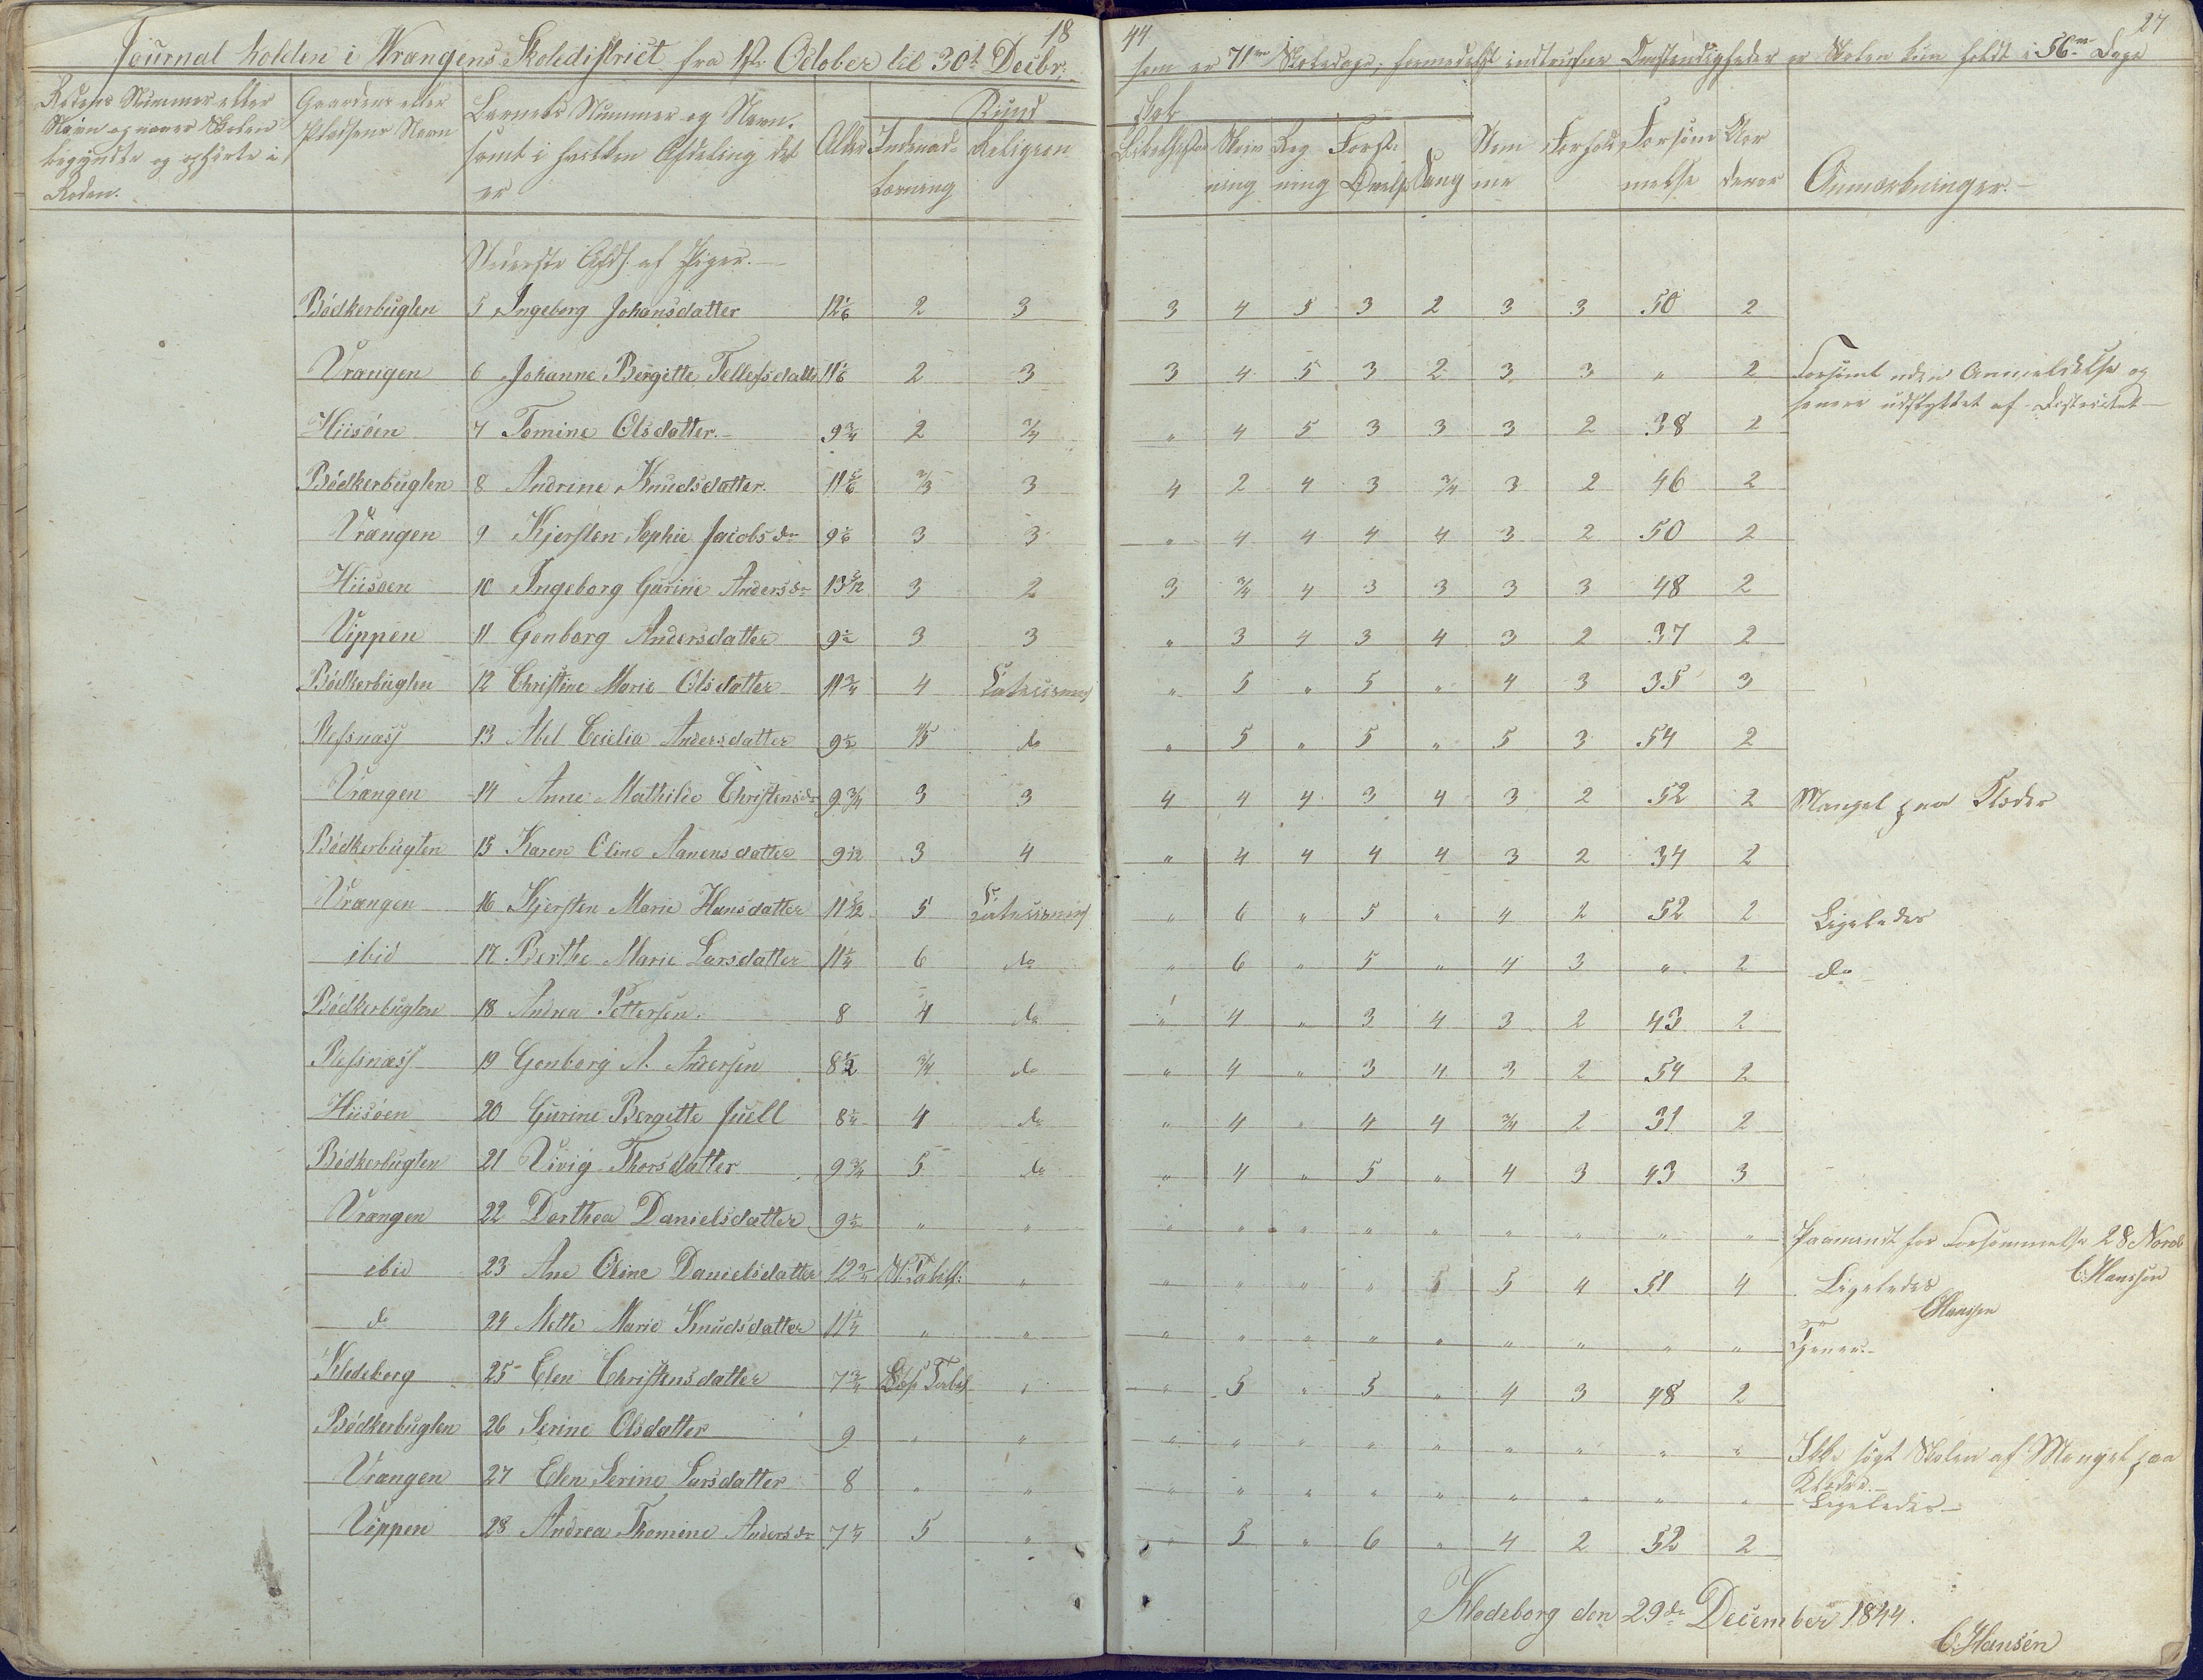 18 44 27
Journal holden i Wrangens Skoledistrict fra 1ste October til 30t Decibr:
som er 71ve Skoledage, formedelst indtrufne Omstændigheder er Skolen kun holdt i 56 Dage
Rodens Nummer eller Navn og naar Skolen begyndte og ophørte i Roden.
Gaardens eller Pladsens Navn
Barnets Nummer og Navn, samt i hvilken Afdeling det er
Alder
Kundskab
Indenadlæsning
Religion
Skrivning
Regning
Sang
Nemme
Forhold
Forsømmelse
Anmærkninger.
Nederste Afd. af Piger.
Bödkerbugten 5 Ingeborg Johansdatter 12 1/6 2 3 3 4 5 3 2 3 3 50 2
Vrangen 6 Johanne Bergitte Tellefsdatter 11 1/6 2 3 3 4 5 3 2 3 3 " 2 Forsömt uden Anmeldelse og senere udflyttet af Districtet
Hiisöen 7 Tomine Olsdatter. 9 3/4 2 3/4 " 4 5 3 3 3 2 38 2
Bödkerbugten 8 Andrine Knudsdatter. 11 5/6 2/3 3 4 2 4 3 3/4 3 2 46 2
Vrangen 9 Kjersten Sophie Jacobsdr 9 1/6 3 3 " 4 4 4 4 3 2 50 2
Hiisöen 10 Ingeborg Gurine Andersdr 13 5/12 3 2 3 3/4 4 3 3 3 3 48 2
Vippen 11 Gonborg Andersdatter 9 1/2 3 3 " 3 4 3 4 3 2 37 2
Bödkerbugten 12 Christine Marie Olsdatter 11 3/4 4 " 5 " 5 " 4 3 35 3
Refsnæss 13 Abel Cecelia Andersdatter 9 1/2 4/5 do " 5 " 5 " 5 3 54 2
Vrangen 14 Anne Mathilde Christensdr 9 3/4 3 3 4 4 4 3 4 3 2 52 2 Mangel paa Klæder
Bödkerbugten 15 Karen Oline Aanensdatter 9 1/12 3 4 " 4 4 4 4 3 2 34 2
Vrangen 16 Kjersten Marie Hansdatter 11 5/12 5 " 6 " 5 " 4 2 52 2 Ligeledes
ibid 17 Berthe Marie Larsdatter 11 1/4 6 do " 6 " 5 " 4 3 " 2 do
Bödkerbugten 18 Andrea Pettersen. 8 4 do " 4 " 3 4 3 2 43 2
Refsnæss 19 Gonborg A. Andersen 8 1/2 3/4 do " 4 " 3 4 3 2 54 2
Hiisöen 20 Gurine Bergitte Juell 8 1/4 4 do " 4 " 4 4 3/4 2 31 2
Bödkerbugten 21 Vivig Thorsdatter 9 3/4 5 do " 4 " 5 " 4 3 43 3
Vrangen 22 Dorthea Danielsdatter 9 1/2 " " " " " " " " " " " Paamindt for Forsömmelse 28 Novb C. Hanssen
ibid 23 Ane Oline Danielsdatter 12 3/4 " " " " " 5 5 4 51 4 Ligeledes CHanssen
do 24 Mette Marie Knudsdatter 11 1/4 " " " " " " " " " " "
Klodeborg 25 Elen Christensdatter 7 3/4 " " 5 " 5 " 4 3 48 2
Bödkerbugten 26 Serine Olsdatter 9 " " " " " " " " " " " Ikke sögt Skolen af Mangel paa Klæder.
Vrangen 27 Elen Serine Larsdatter 8 " " " " " " " " " " " Ligeledes
Vippen 28 Andrea Thomine Andersdr 7 1/4 5 " " 5 " 6 " 4 2 52 2
Klodeborg den 29de December 1844.
C. Hansen